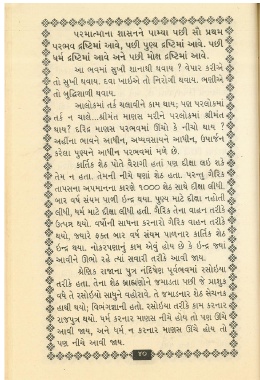 પરમાત્માના શાસનને પામ્યા પછી સૌ પ્રથમ
પરભવ દ્રષ્ટિમાં આવે, પછી પુણ્ય દ્રષ્ટિમાં આવે. પછી
ધર્મ દ્રષ્ટિમાં આવે અને પછી મોક્ષ દ્રષ્ટિમાં આવે.
આ ભવમાં સુખી શાનાથી થવાય ? વેપાર કરીએ
તો સુખી થવાય. દવા ખાઈએ તો નિરોગી થવાય. ભણીએ
તો બુદ્ધિશાળી થવાય.
આલોકમાં તર્ક ચલાવીને કામ થાય; પણ પરલોકમાં
તર્ક ન ચાલે...શ્રીમંત માણસ મરીને પરલોકમાં શ્રીમંત
થાય? દરિદ્ર માણસ પરભવમાં ઊંચો કે નીચો થાય ?
અહીંના ભાવને આધીન, અધ્યવસાયને આધીન, ઉપાર્જન
કરેલા પુણ્યને આધીન પરભવમાં મળે છે.
કાર્તિક શેઠ પોતે વૈરાગી હતાં પણ દીક્ષા લઇ શકે
તેમ ન હતા. તેમની નીચે ઘણાં શેઠ હતા. પરન્તુ ગૈરિક
તાપસના અપમાનના કારણે ૧૦૦૦ શેઠ સાથે દીક્ષા લીધી.
બાર વર્ષ સંયમ પાળી ઇન્દ્ર થયા. પુણ્ય માટે દીક્ષા નહોતી
લીધી, ધર્મ માટે દીક્ષા લીધી હતી. ગૈરિક તેના વાહન તરીકે
ઉત્પન્ન થયો. વર્ષોની સાધના કરનારો ગૈરિક વાહન તરીકે
થયો. જ્યારે ફક્ત બાર વર્ષ સંયમ પાળનાર કાર્તિક શેઠ
ઇન્દ્ર થયા. નોકરપણાનું કામ એવું હોય છે કે ઇન્દ્ર જ્યાં
આવીને ઊભો રહે ત્યાં સવારી તરીકે આવી જાય.
શ્રેણિક રાજાના પુત્ર નંદિષેણ પૂર્વભવમાં રસોઇયા
તરીકે હતા. તેના શેઠ બ્રાહ્મણોને જમાડતા પછી જે આશુક
વધે તે રસોઇયો સાધુને વહોરાવે. તે જમાડનાર શેઠ સેચનક
હાથી થયો; વિભંગજ્ઞાની હતો. રસોઇયા તરીકે કામ કરનાર
રાજપુત્ર થયો. ધર્મ કરનાર માણસ નીચે હોય તો પણ ઊંચે
આવી જાય, અને ધર્મ ન કરનાર માણસ ઊંચે હોય તો
પણ નીચે આવી જાય.